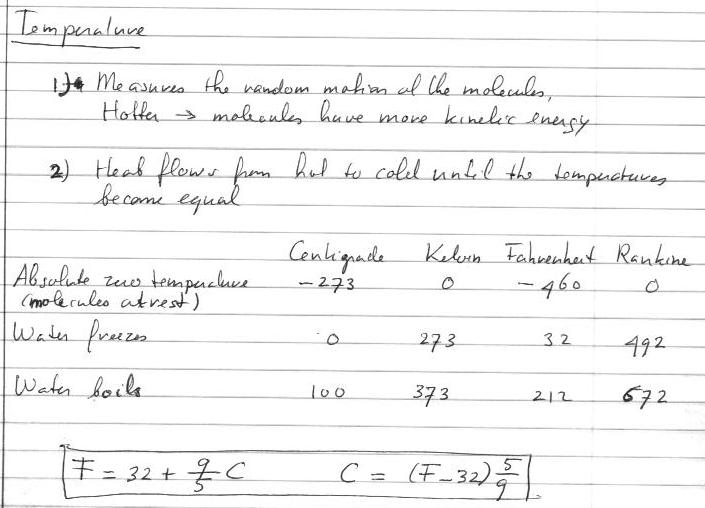 Temperature
1) Measures the random motion of the molecules,
Hotter → molecules have more kinetic energy
2) Heat flows from hot to cold until the temperatures
become equal
Centigrade Kelvin Fahrenheit Rankine
Absolute zero temperature -273 0 -460 0
(molecules at rest)
Water freezes 0 273 32 492
Water boils 100 373 212 672
F = 32 + 9/5 C C = (F-32) 5/9